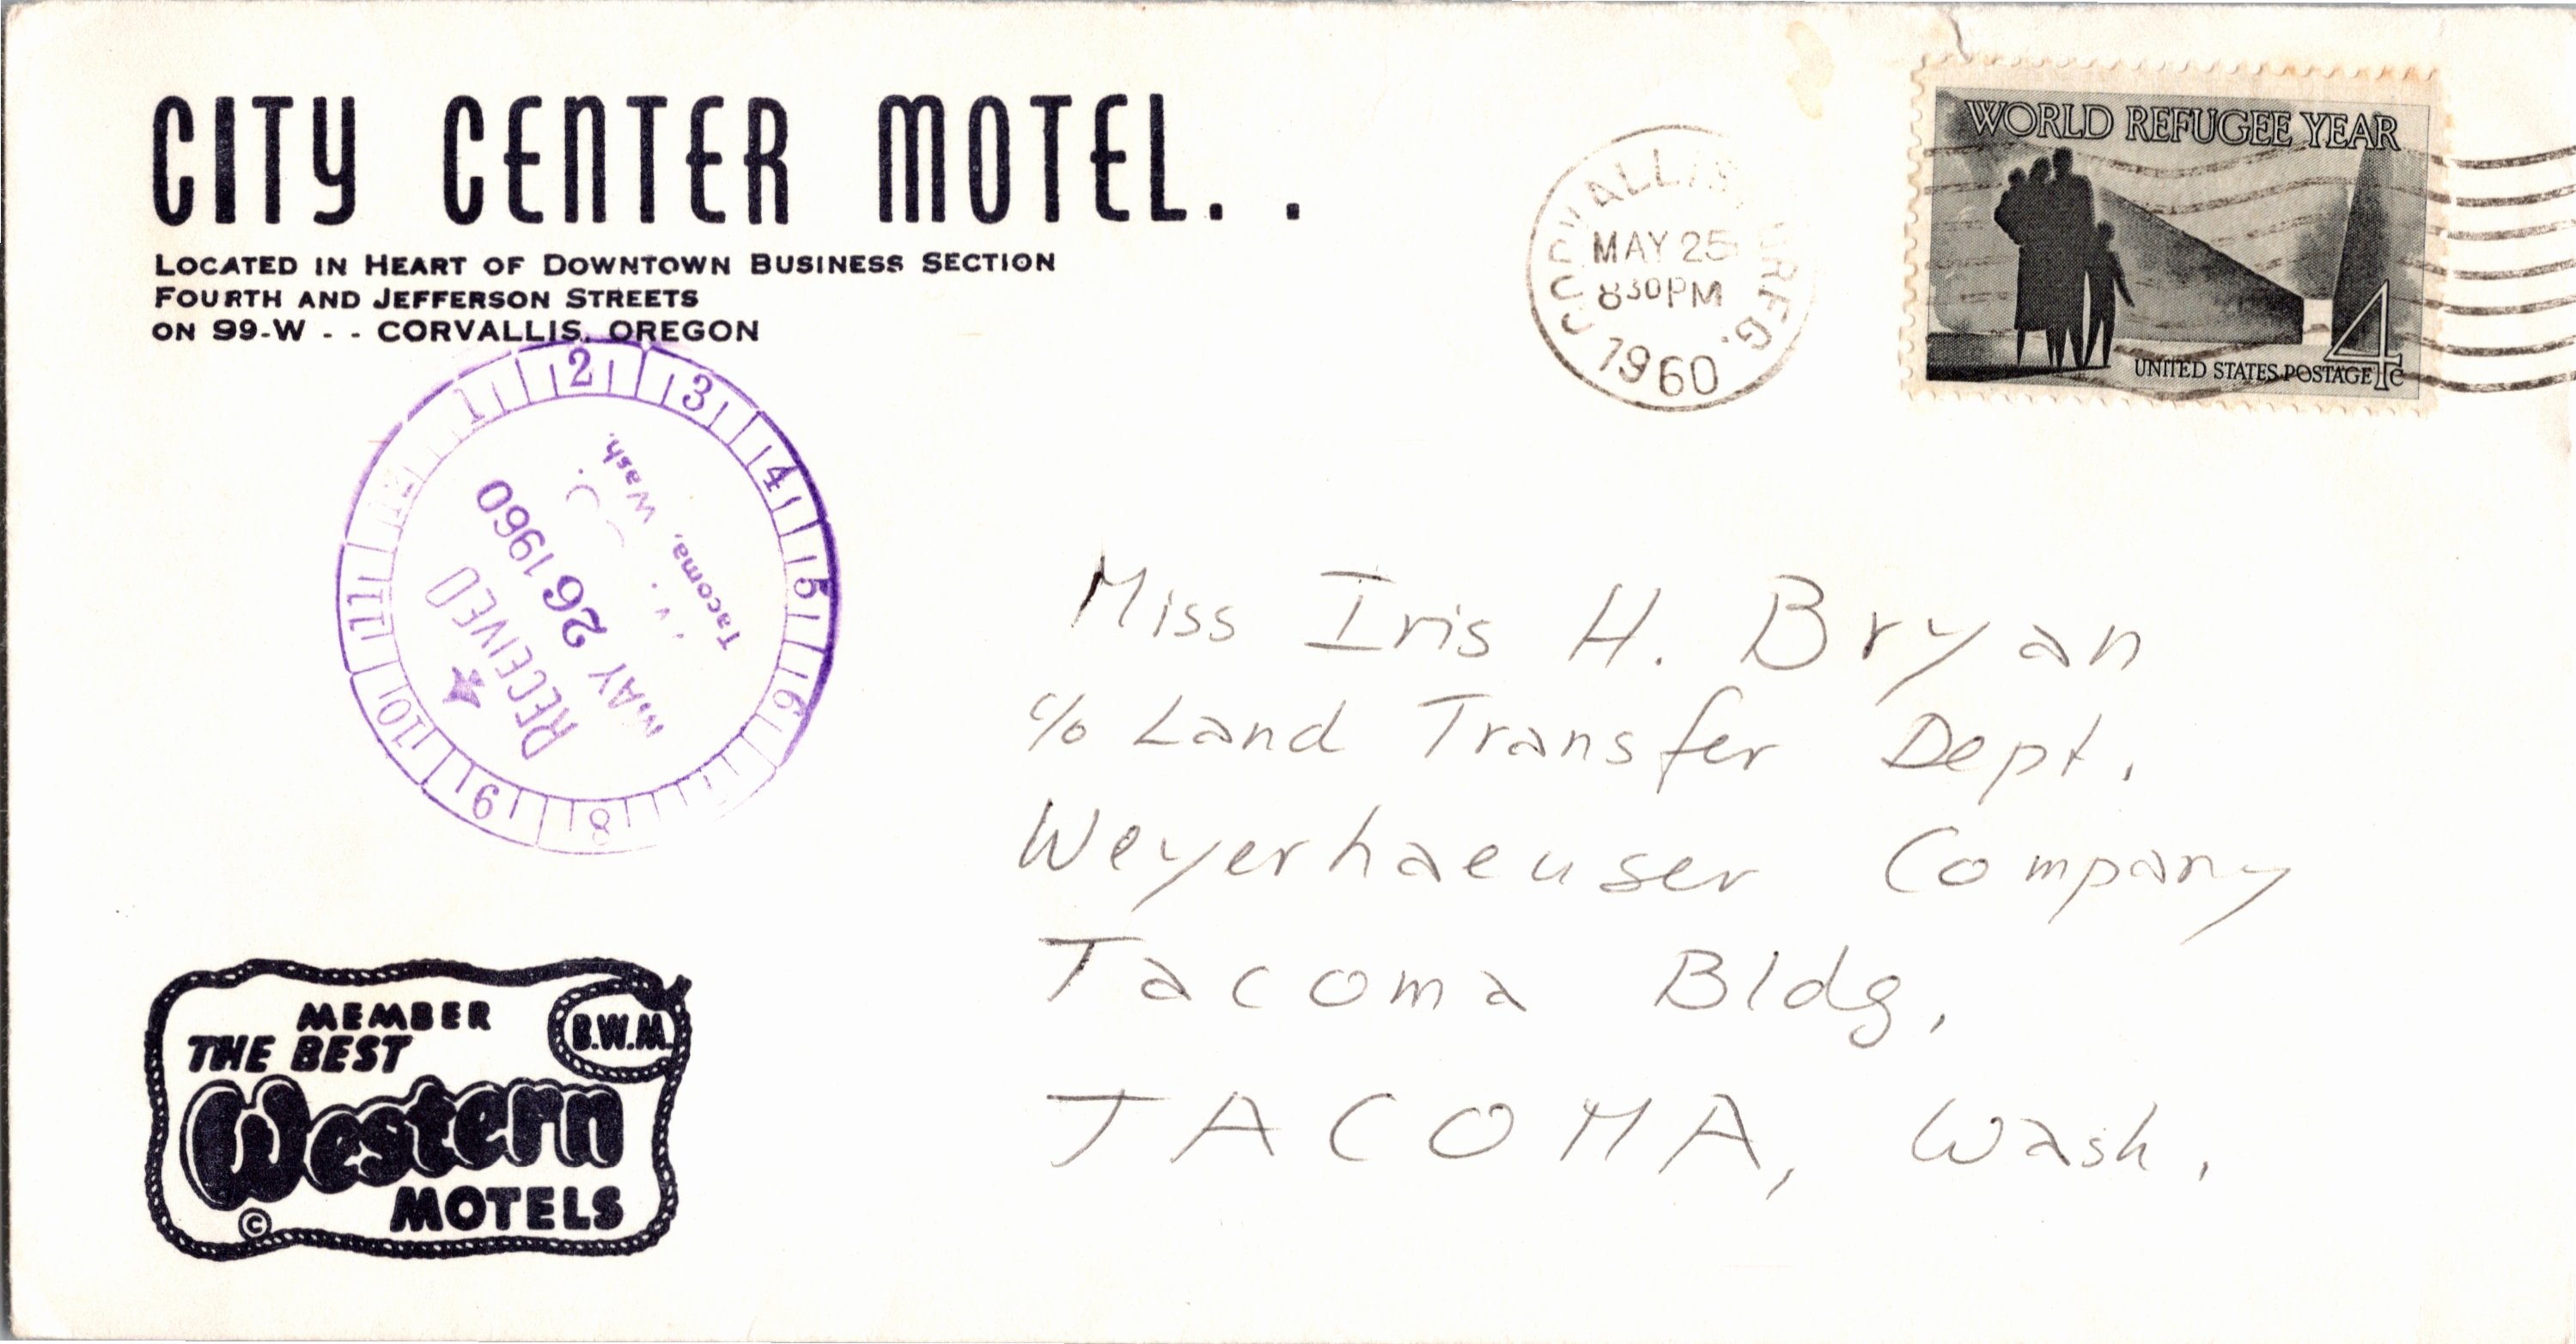 CITY CENTER MOTEL. .
LOCATED IN HEART OF DOWNTOWN BUSINESS SECTION
FOURTH AND JEFFERSON STREETS
ON 99-W - - CORVALLIS, OREGON
CORVALLIS OREG.
MAY 25
830PM
1960
WORLD REFUGEE YEAR
4c
UNITED STATES POSTAGE
1 2 3 4 5 6 8 9 10 11
RECEIVED
MAY 26 1960
Tacoma, Wash.
Miss Iris H. Bryan
c/o Land Transfer Dept.
Weyerhaeuser Company
Tacoma Bldg.
TACOMA, Wash.
MEMBER
THE BEST
B.W.M.
Western
MOTELS
©